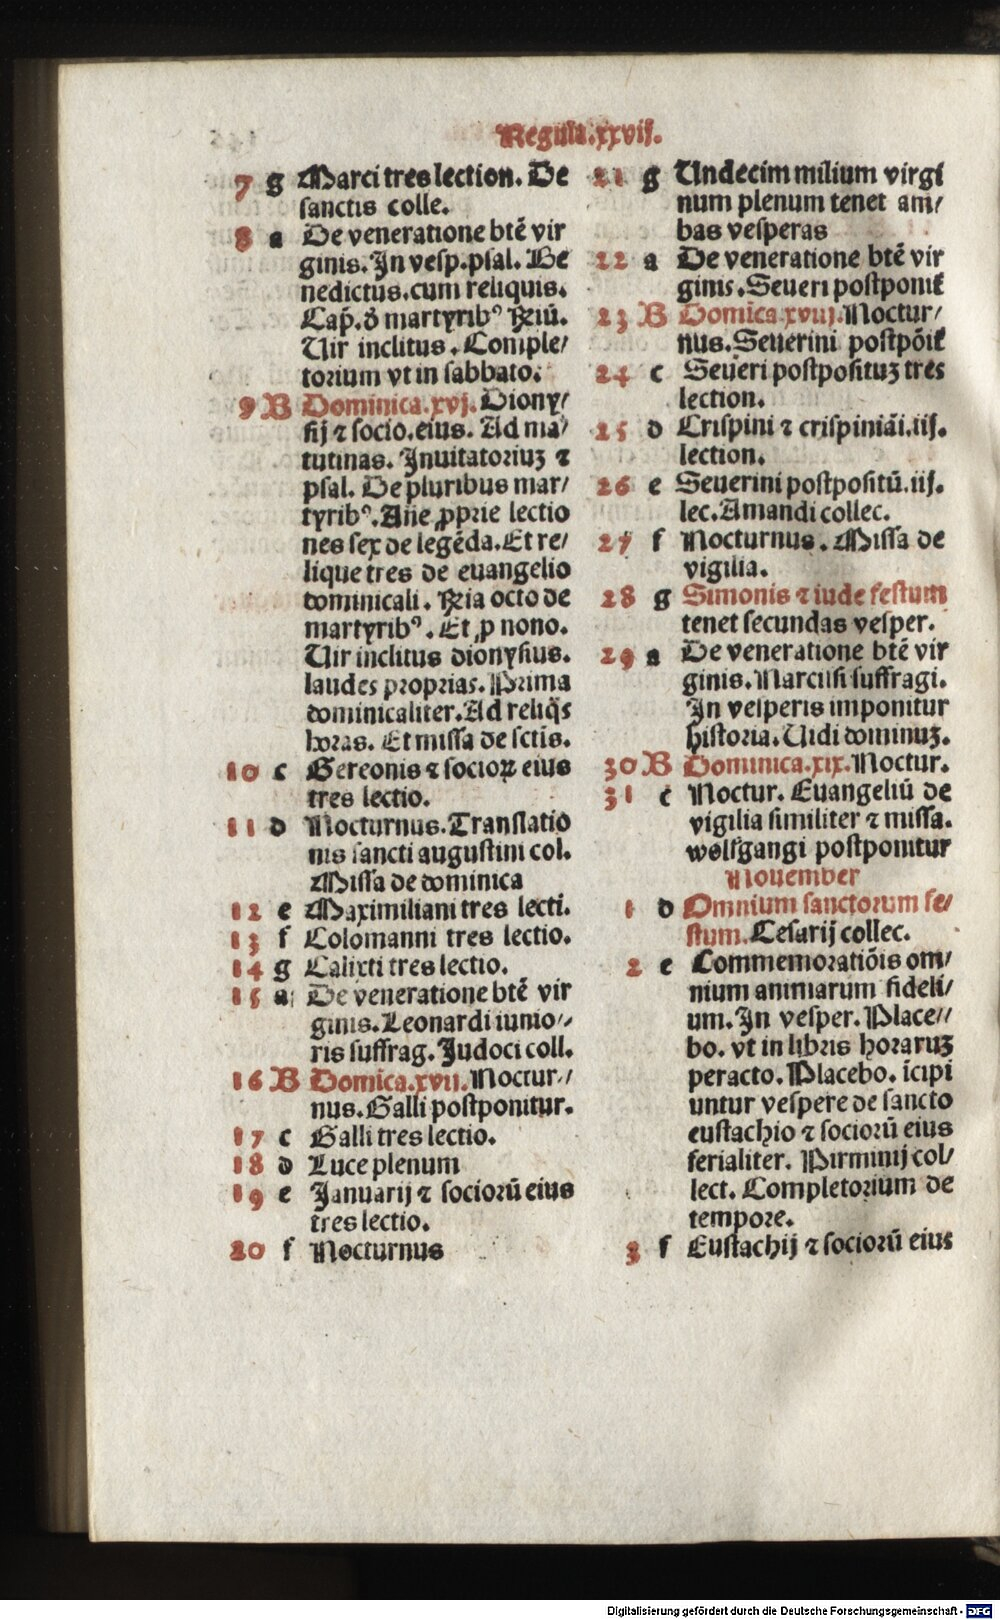 Regula.xxvij.
7 g Marci tres lection. De
sanctis colle.
8 a De veneratione btē vir
ginis. In vesp.psal. Be
nedictus.cum reliquis.
Cap̄. d̄ martyribꝰ ꝶiū.
Uir inclitus. Comple/
torium vt in sabbato.
9 B Dominica.xvj. Diony/
sij ⁊ socio.eius. Ad ma/
tutinas. Inuitatoriuꝫ ⁊
psal. De pluribus mar/
tyribꝰ. Añe ꝓprie lectio
nes sex de legēda. Et re/
lique tres de euangelio
dominicali. ꝶia octo de
martyribꝰ. Et ꝓ nono.
Uir inclitus dionysius.
laudes proprias. Prima
dominicaliter. Ad reliq̄s
horas. Et missa de sctīs.
10 c Gereonis ⁊ socioꝝ eius
tres lectio.
11 d Nocturnus. Translatio
nis sancti augustini col.
Missa de dominica
12 e Maximiliani tres lecti.
13 f Colomanni tres lectio.
14 g Calixti tres lectio.
15 a De veneratione btē vir
ginis. Leonardi iunio/
ris suffrag. Judoci coll.
16 B Domica.xvij. Noctur/
nus. Galli postponitur.
17 c Galli tres lectio.
18 d Luce plenum
19 e Januarij ⁊ sociorū eius
tres lectio.
20 f Nocturnus
21 g Undecim milium virgi
num plenum tenet am/
bas vesperas
22 a De veneratione btē vir
ginis. Seueri postponit̄
23 B Domica xviij. Noctur/
nus. Seuerini postpōit̄
24 c Seueri postposituꝫ tres
lection.
25 d Crispini ⁊ crispiniāi.iij.
lection.
26 e Seuerini postpositū.iij.
lec. Amandi collec.
27 f Nocturnus. Missa de
vigilia.
28 g Simonis ⁊ iude festum
tenet secundas vesper.
29 a De veneratione btē vir
ginis. Narcissi suffragi.
In vesperis imponitur
historia. Uidi dominuꝫ.
30 B Dominica.xix. Noctur.
31 c Noctur. Euangeliū de
vigilia similiter ⁊ missa.
wolfgangi postponitur
Nouember
1 d Omnium sanctorum fe/
stum. Cesarij collec.
2 e Commemoratiōis om/
nium animarum fideli/
um. In vesper. Place//
bo. vt in libris horaruꝫ
peracto. Placebo. īcipi
untur vespere de sancto
eustachio ⁊ sociorū eius
ferialiter. Pirminij col/
lect. Completorium de
tempore.
3 f Eustachij ⁊ sociorū eius
Digitalisierung gefördert durch die Deutsche Forschungsgemeinschaft - DFG